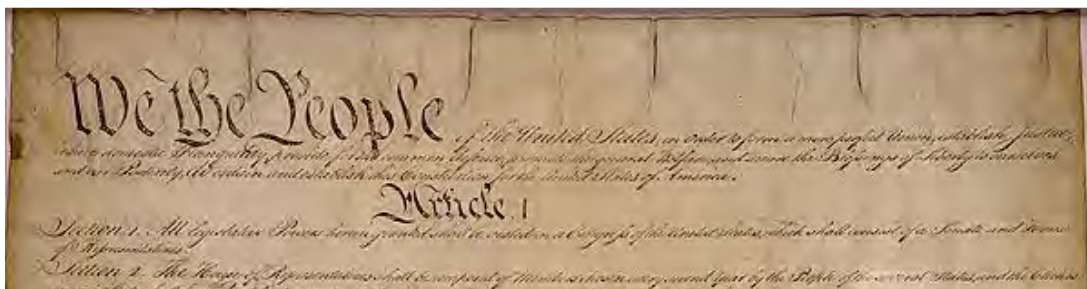 We the People of the United States, in Order to form a more perfect Union, establish Justice,
insure domestic Tranquility, provide for the common defence, promote the general Welfare, and secure the Blessings of Liberty to ourselves
and our Posterity, do ordain and establish this Constitution for the United States of America.
Article. I
Section. 1. All legislative Powers herein granted shall be vested in a Congress of the United States, which shall consist of a Senate and House
of Representatives.
Section. 2. The House of Representatives shall be composed of Members chosen every second Year by the People of the several States, and the Electors